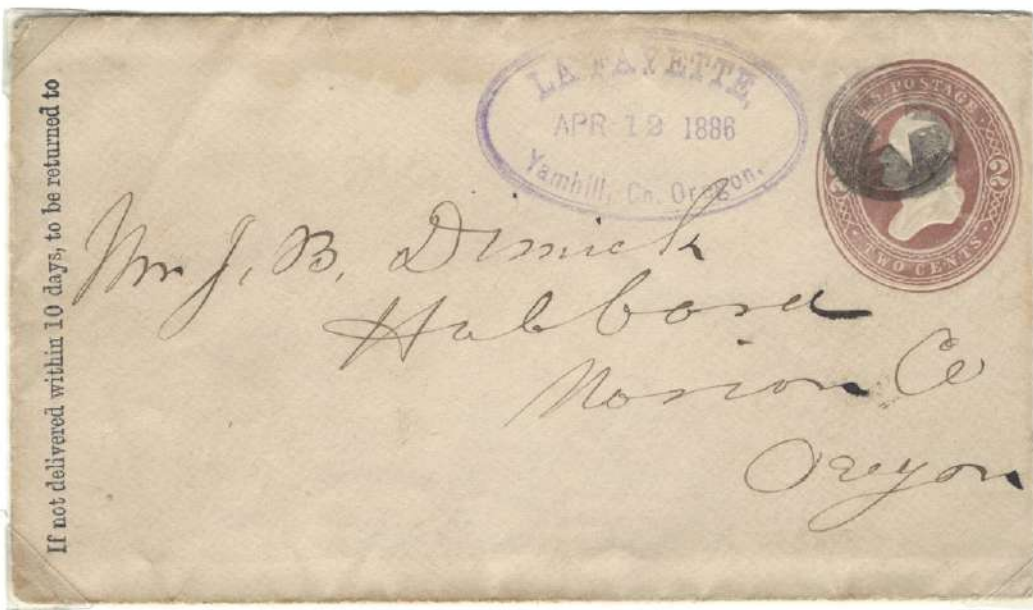 If not delivered within 10 days, to be returned to
LA FAYETTE,
APR 19 1886
Yamhill, Co. Oregon.
U.S. POSTAGE
2 2
TWO CENTS
Mr J. B. Dimick
Hubbard
Marion Co
Oregon